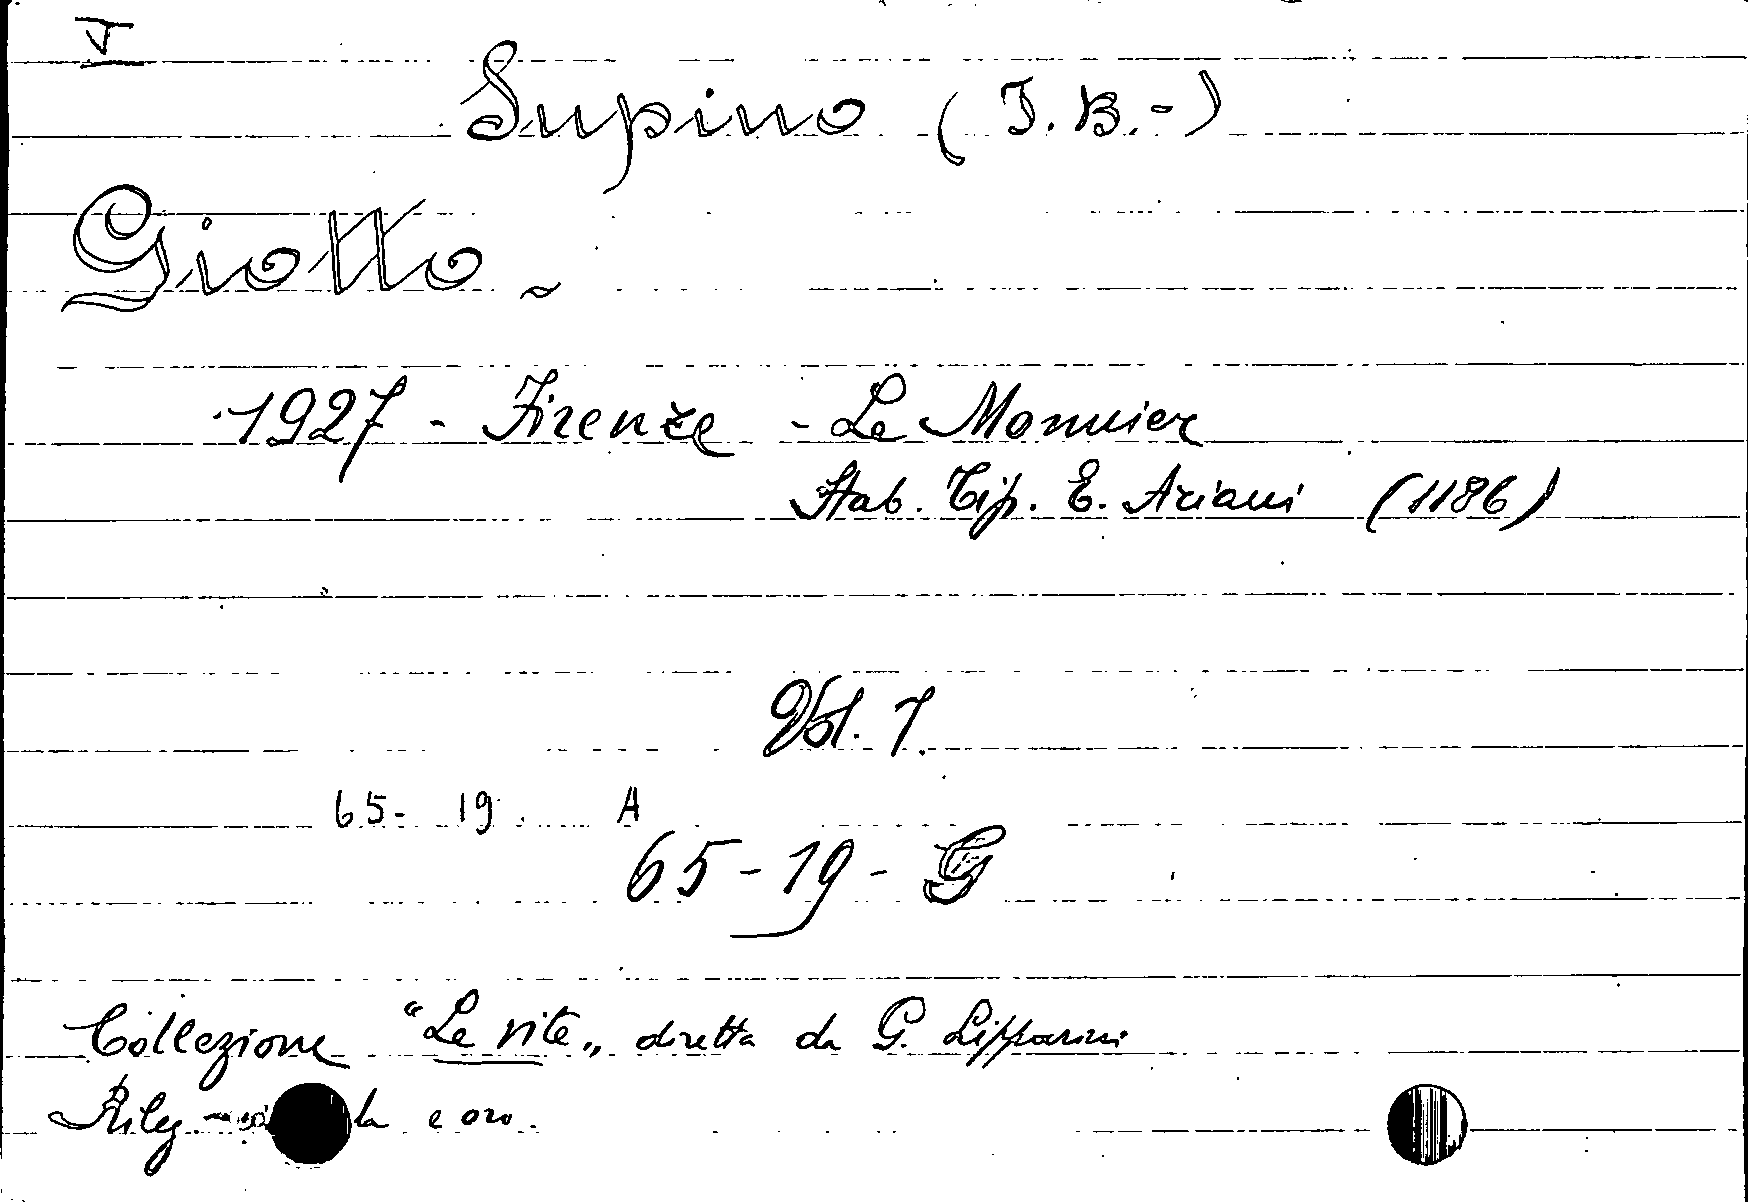 I
Supino (I. B. -)
Giotto. ~
1927 - Firenze - Le Monnier
Stab. Tip. E. Ariani (1186)
Vol. 1.
65 - 19. A
65 - 19 - G
Collezione "Le vite„ diretta da G. Lipparini
Rileg. la e oro.